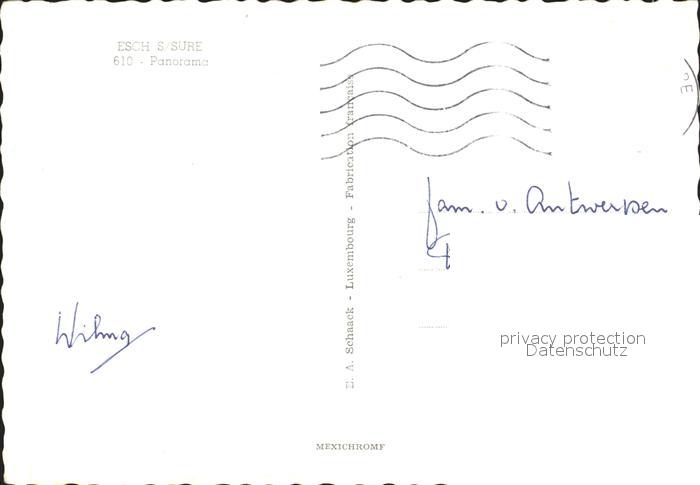 ESCH S/SURE
610 - Panorama
E. A. Schaack - Luxembourg - Fabrication française
fam. v. Antwerpen
Wilma
privacy protection
Datenschutz
MEXICHROME